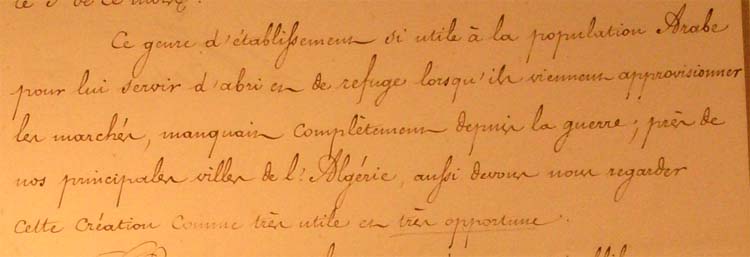 Ce genre d'établissement si utile à la population Arabe
pour lui servir d'abri et de refuge lorsqu'ils viennent approvisionner
les marchés, manquait complètement depuis la guerre; près de
nos principales villes de l'Algérie, aussi devons nous regarder
cette création comme très utile et très opportune.